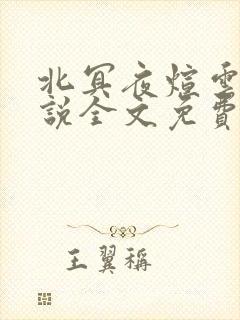 北冥夜煊雲
說全文免費
王翼稱